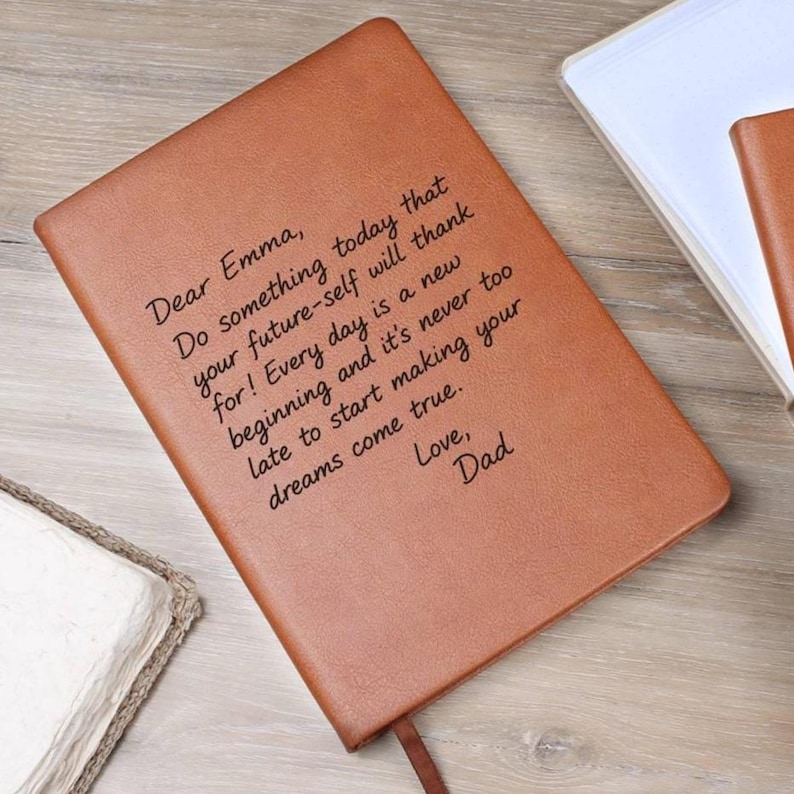 Dear Emma,
Do something today that
your future-self will thank
for! Every day is a new
beginning and it's never too
late to start making your
dreams come true.
Love,
Dad